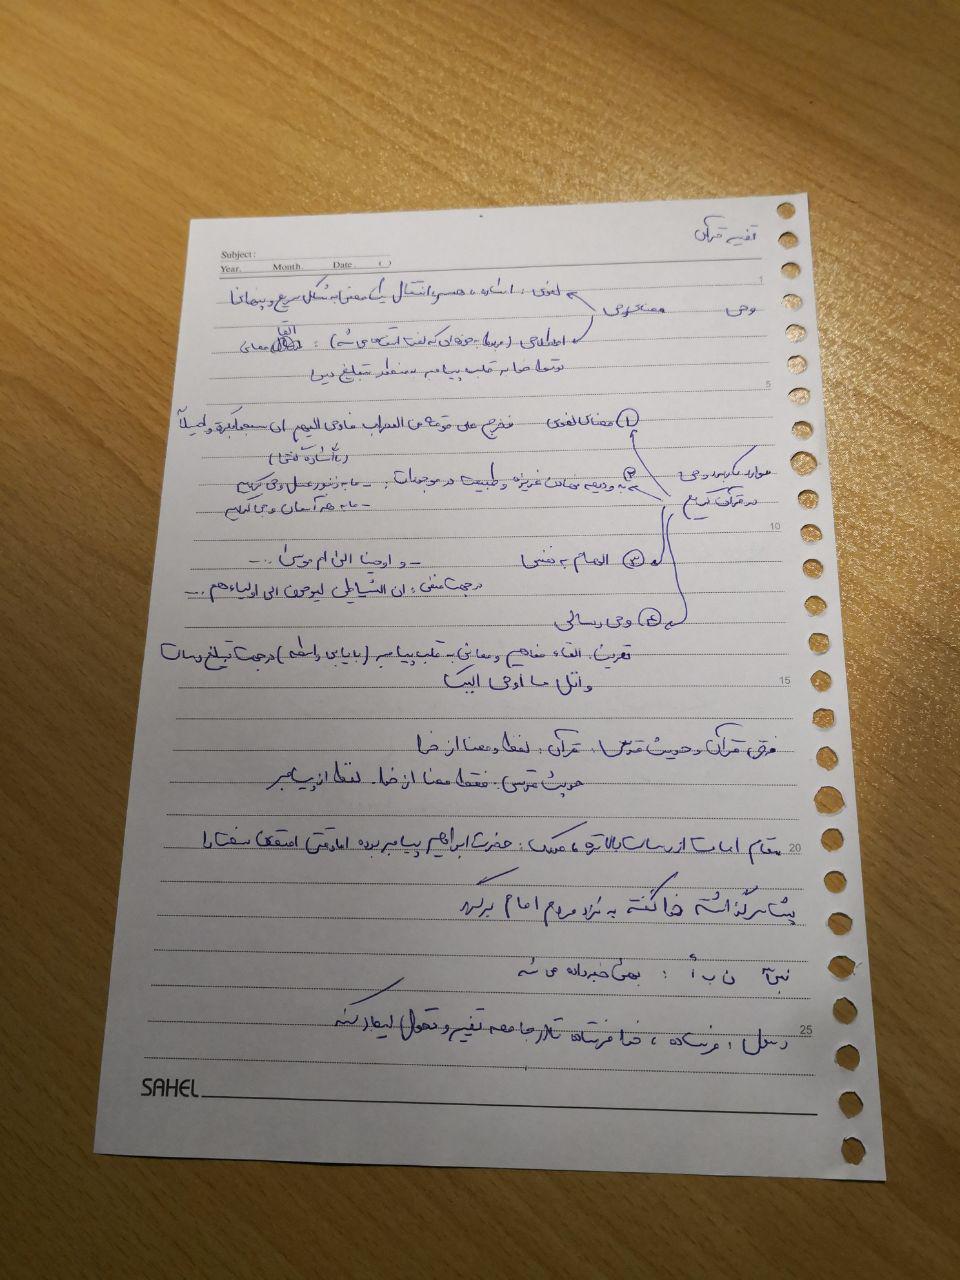 تفسیر قرآن
Subject:
Year. Month. Date. ( )
وحی معنای وحی لغوی: اشاره، انتقال یک معنی به شکل سریع و پنهانی
اصطلاحی (مربوط به حوزه ای که لفظ استفاده می شه): القا معانی
توسط خدا به قلب پیامبر به منظور تبلیغ دین
موارد کاربرد وحی در قرآن کریم
① معنای لغوی فخرج علی قومه من المحراب فاوحی الیهم ان سبحوا بکرة و عشیاً
(با اشاره گفت)
② به ودیعه نهادن غریزه و طبیعت در موجودات: - ما به زنبور عسل وحی کردیم
- ما به هر آسمان وحی کردیم
③ الهام به نفس - و اوحینا الی ام موسی ...
در جهت منفی: ان الشیاطین لیوحون الی اولیاءهم ...
④ وحی رسالی
تعریف: القاء مفاهیم و معانی به قلب پیامبر (با یا بی واسطه) در جهت تبلیغ رسالت
واتل ما اوحی الیک
فرق قرآن و حدیث قدسی: قرآن: لفظ و معنا از خدا
حدیث قدسی: فقط معنا از خدا. لفظ از پیامبر
مقام امامت از رسالت بالاتره، : حضرت ابراهیم پیامبر بوده اما وقتی امتحان سخت را
پشت سر گذاشته خدا گفته به نزد مردم امام برگرد
نبی ن ب أ : بهش خبر داده می شه
رسول: فرستاده، خدا فرستاده تا در جامعه تغییر و تحول ایجاد کنه
1
5
10
15
20
25
SAHEL